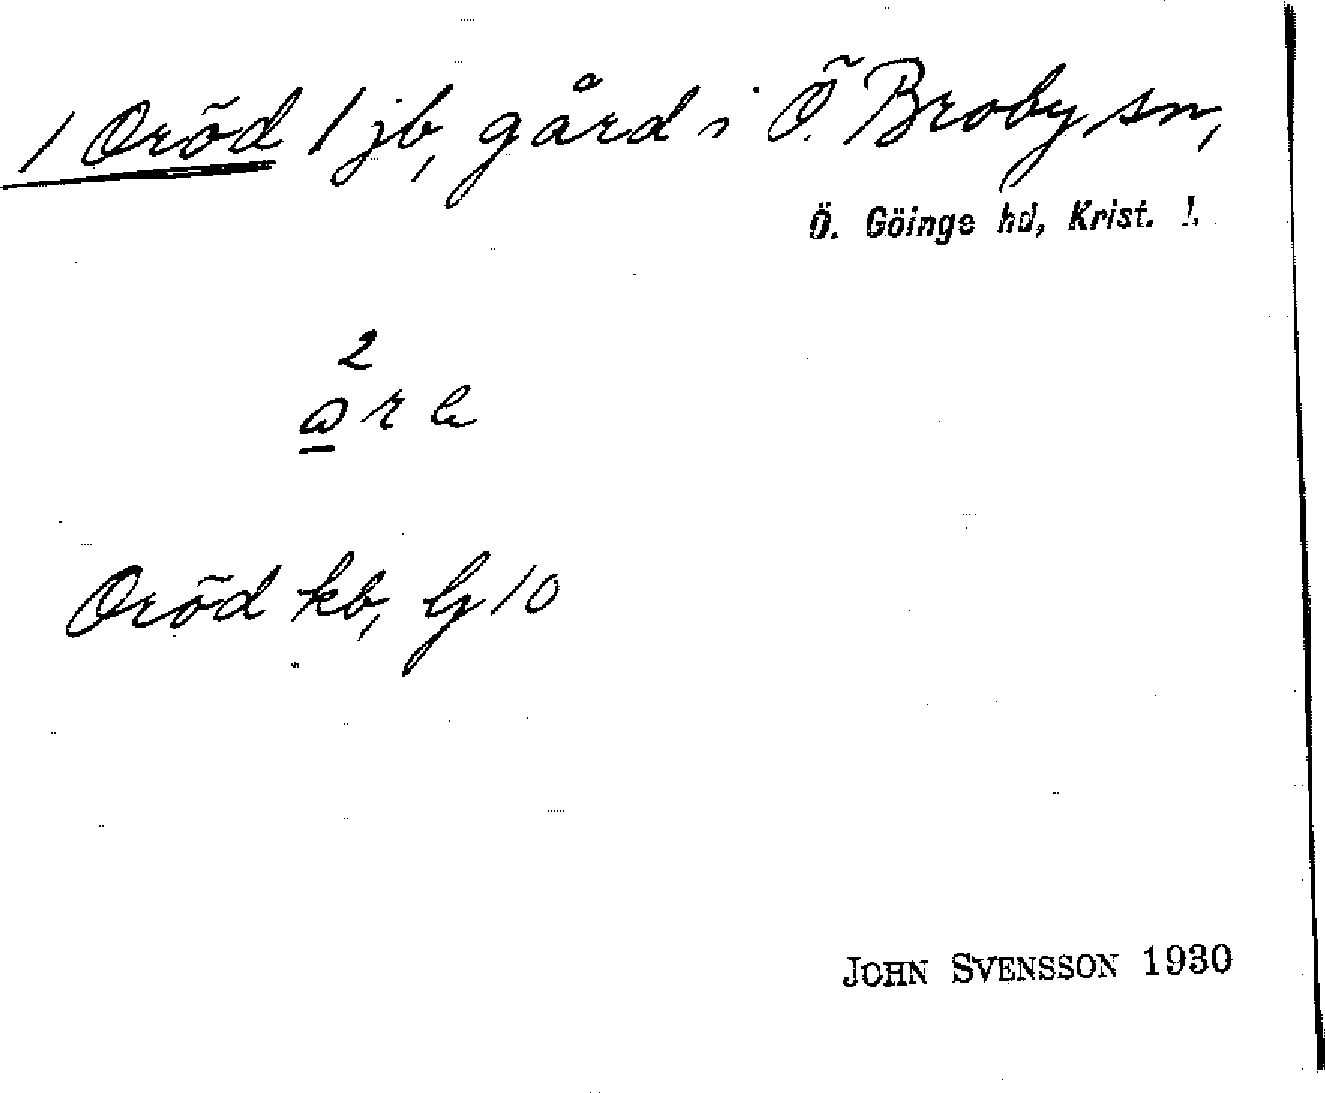 / Oröd / jb, gård i Ö. Broby sn,
Ö. Göinge hd, Krist. l.
2
Oröd kb, G 10
JOHN SVENSSON 1930